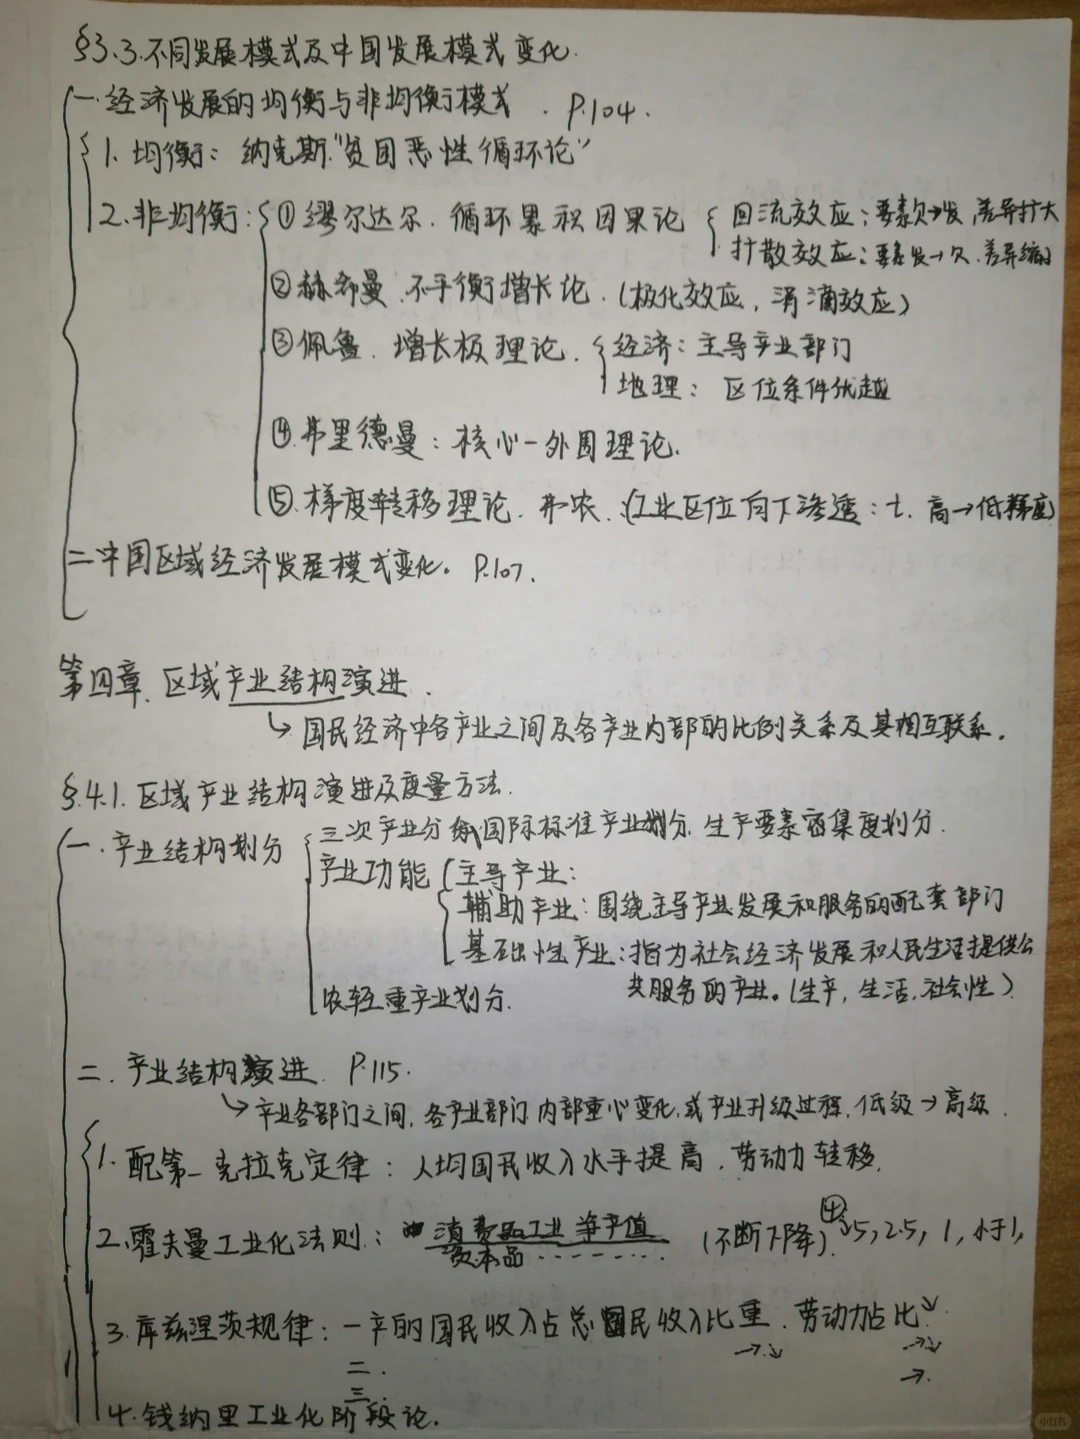 §3.3.不同发展模式及中国发展模式变化.
一.经济发展的均衡与非均衡模式. P.104.
1.均衡:纳克斯"贫困恶性循环论"
2.非均衡:①缪尔达尔.循环累积因果论 回流效应:要素欠→发,差异扩大
扩散效应:要素发→欠.差异缩小
②赫希曼.不平衡增长论.(极化效应,涓滴效应)
③佩鲁.增长极理论. 经济:主导产业部门
地理:区位条件优越
④.弗里德曼:核心-外围理论.
⑤.梯度转移理论.弗农.(工业区位向下渗透:t.高→低梯度)
二.中国区域经济发展模式变化。P.107.
第四章.区域产业结构演进.
↳国民经济中各产业之间及各产业内部的比例关系及其相互联系.
§.4.1.区域产业结构演进及度量方法.
一.产业结构划分 三次产业分类,国际标准产业划分.生产要素密集度划分.
产业功能 主导产业:
辅助产业:围绕主导产业发展和服务的配套部门
基础性产业:指为社会经济发展和人民生活提供公
共服务的产业。(生产,生活,社会性)
农轻重产业划分.
二.产业结构演进. P.115.
↳产业各部门之间,各产业部门内部重心变化,或产业升级过程.低级→高级.
1.配第-克拉克定律:人均国民收入水平提高.劳动力转移.
2.霍夫曼工业化法则: 消费品工业净产值 (不断下降).④5,2.5,1,小于1,
资本品------
3.库兹涅茨规律:一产的国民收入占总国民收入比重.劳动力占比↘.
二. →.↘ →.↘
三. →.
4.钱纳里工业化阶段论.